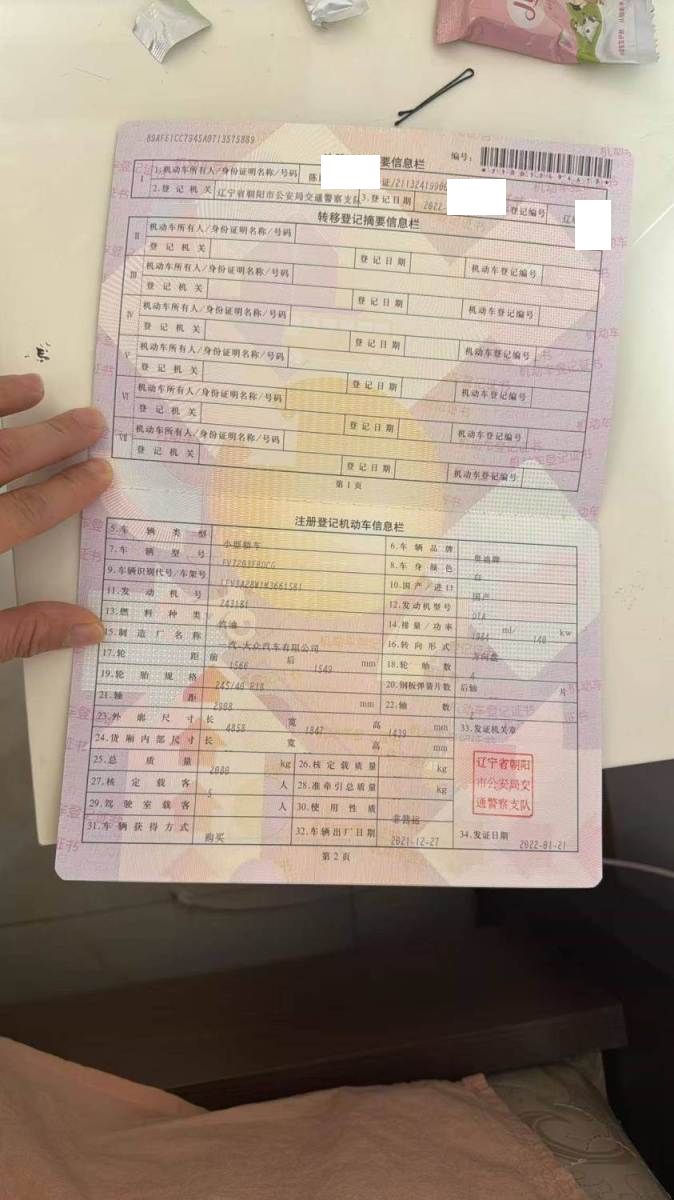 89AFE1CC7945A0713575889
编号:
要信息栏
I 1.机动车所有人/身份证明名称/号码 陈 证/211324199
2.登记机关 辽宁省朝阳市公安局交通警察支队 3.登记日期 2022- 登记编号 辽
转移登记摘要信息栏
II 机动车所有人/身份证明名称/号码
登记机关 登记日期 机动车登记编号
III 机动车所有人/身份证明名称/号码
登记机关 登记日期 机动车登记编号
IV 机动车所有人/身份证明名称/号码
登记机关 登记日期 机动车登记编号
V 机动车所有人/身份证明名称/号码
登记机关 登记日期 机动车登记编号
VI 机动车所有人/身份证明名称/号码
登记机关 登记日期 机动车登记编号
VII 机动车所有人/身份证明名称/号码
登记机关 登记日期 机动车登记编号
第1页
注册登记机动车信息栏
5.车辆类型 小型轿车 6.车辆品牌 奥迪牌
7.车辆型号 8.车身颜色 白
9.车辆识别代号/车架号 10.国产/进口 国产
11.发动机号 243181 12.发动机型号 DTA
13.燃料种类 汽油 14.排量/功率 1984 ml/ 140 kw
15.制造厂名称 一汽-大众汽车有限公司 16.转向形式 方向盘
17.轮距 前 1566 后 1549 mm 18.轮胎数 4
19.轮胎规格 245/40 R18 20.钢板弹簧片数 后轴 片
21.轴距 2908 mm 22.轴数
23.外廓尺寸 长 4858 宽 1847 高 1439 mm 33.发证机关章
24.货厢内部尺寸 长 宽 高 mm
25.总质量 2080 kg 26.核定载质量 kg
27.核定载客 5 人 28.准牵引总质量 kg
29.驾驶室载客 人 30.使用性质 非营运
31.车辆获得方式 购买 32.车辆出厂日期 2021-12-27 34.发证日期 2022-01-21
辽宁省朝阳
市公安局交
通警察支队
第2页